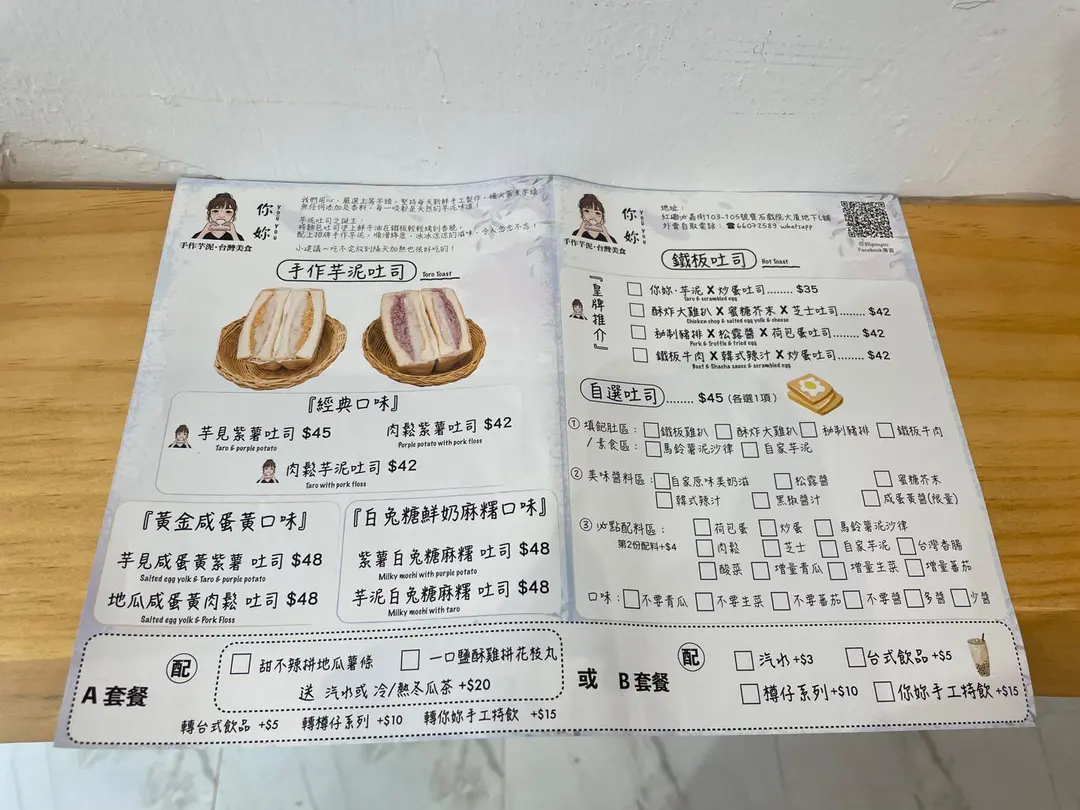 你妳
you you
手作芋泥·台灣美食
芋泥吐司之誕生：
將麵包吐司塗上鮮牛油在鐵板輕輕烤到香脆，
小建議一吃不完放到隔天加熱也很好吃的！
手作芋泥吐司 Toro Toast
『經典口味』
芋見紫薯吐司 $45
Taro & purple potato
肉鬆紫薯吐司 $42
Purple potato with pork floss
肉鬆芋泥吐司 $42
Taro with pork floss
『黃金咸蛋黃口味』
芋見咸蛋黃紫薯 吐司 $48
Salted egg yolk & Taro & purple potato
地瓜咸蛋黃肉鬆 吐司 $48
Salted egg yolk & Pork Floss
『白兔糖鮮奶麻糬口味』
紫薯白兔糖麻糬 吐司 $48
Milky mochi with purple potato
芋泥白兔糖麻糬 吐司 $48
Milky mochi with taro
你妳
you you
手作芋泥·台灣美食
地址：
紅磡必嘉街103-105號寶石戲院大廈地下L舖
外賣自取電話：☎66072589 whatsapp
Facebook專頁
鐵板吐司 Hot Toast
『皇牌推介』
你妳·芋泥 X 炒蛋吐司........ $35
Taro & scrambled egg
酥炸大雞扒 X 蜜糖芥末 X 芝士吐司........ $42
Chicken chop & salted egg yolk & cheese
秘制豬排 X 松露醬 X 荷包蛋吐司........ $42
Pork & Truffle & fried egg
鐵板牛肉 X 韓式辣汁 X 炒蛋吐司........ $42
Beef & Shacha sauce & scrambled egg
自選吐司........ $45 (各選1項)
① 填飽肚區： 鐵板雞扒 酥炸大雞扒 秘制豬排 鐵板牛肉
/ 素食區： 馬鈴薯泥沙律 自家芋泥
② 美味醬料區： 自家原味美奶滋 松露醬 蜜糖芥末
韓式辣汁 黑椒醬汁 咸蛋黃醬(限量)
③ 必點配料區： 荷包蛋 炒蛋 馬鈴薯泥沙律
第2份配料+$4 肉鬆 芝士 自家芋泥 台灣香腸
酸菜 增量青瓜 增量生菜 增量蕃茄
口味： 不要青瓜 不要生菜 不要蕃茄 不要醬 多醬 少醬
A 套餐
配
甜不辣拼地瓜薯條 一口鹽酥雞拼花枝丸
送 汽水或 冷/熱冬瓜茶 +$20
轉台式飲品 +$5 轉樽仔系列 +$10 轉你妳手工特飲 +$15
或 B 套餐
配
汽水 +$3 台式飲品 +$5
樽仔系列 +$10 你妳手工特飲 +$15